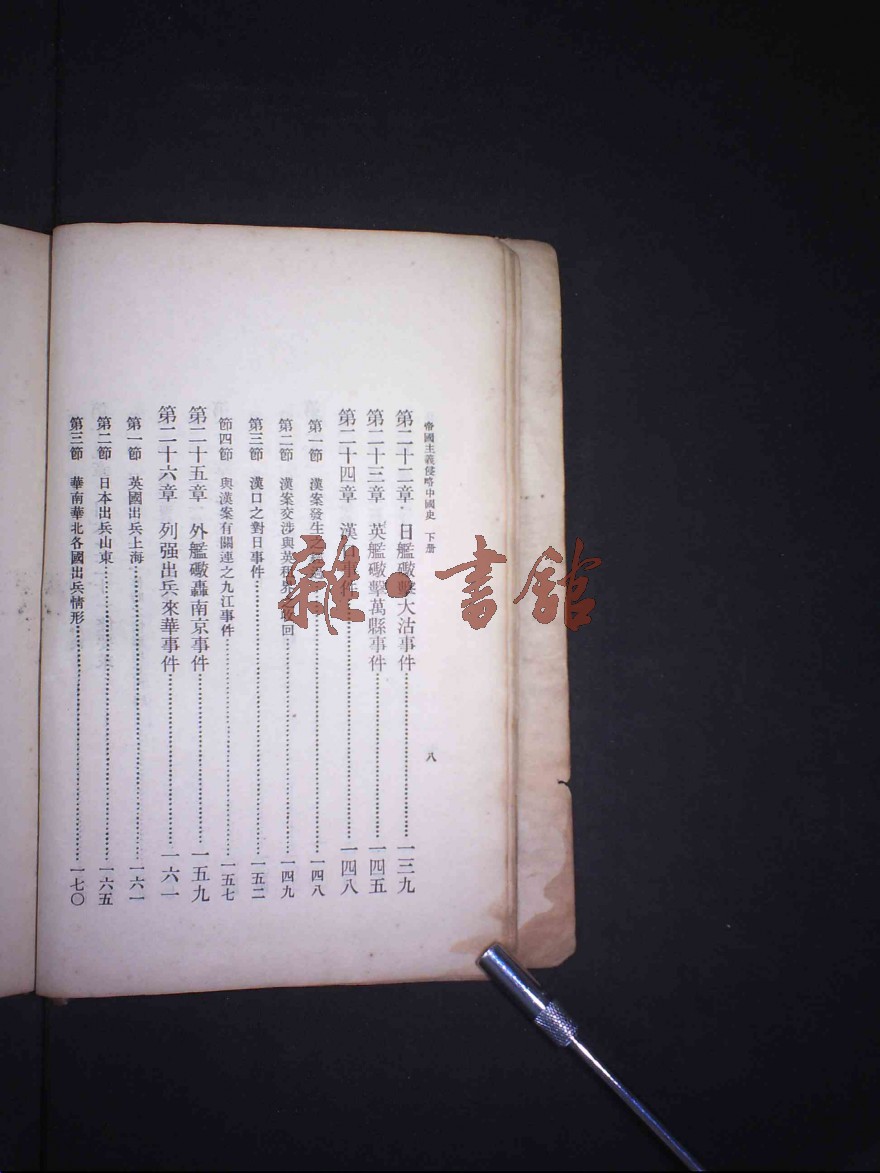 帝國主義侵略中國史 下册
八
第二十二章 · 日艦礮擊大沽事件……一三九
第二十三章 英艦礮擊萬縣事件……一四五
第二十四章 漢口事件……一四八
第一節 漢案發生之……一四八
第二節 漢案交涉與英租界之收回……一四九
第三節 漢口之對日事件……一五二
節四節 與漢案有關連之九江事件……一五七
第二十五章 外艦礮轟南京事件……一五九
第二十六章 列强出兵來華事件……一六一
第一節 英國出兵上海……一六一
第二節 日本出兵山東……一六五
第三節 華南華北各國出兵情形……一七〇
雜·書館